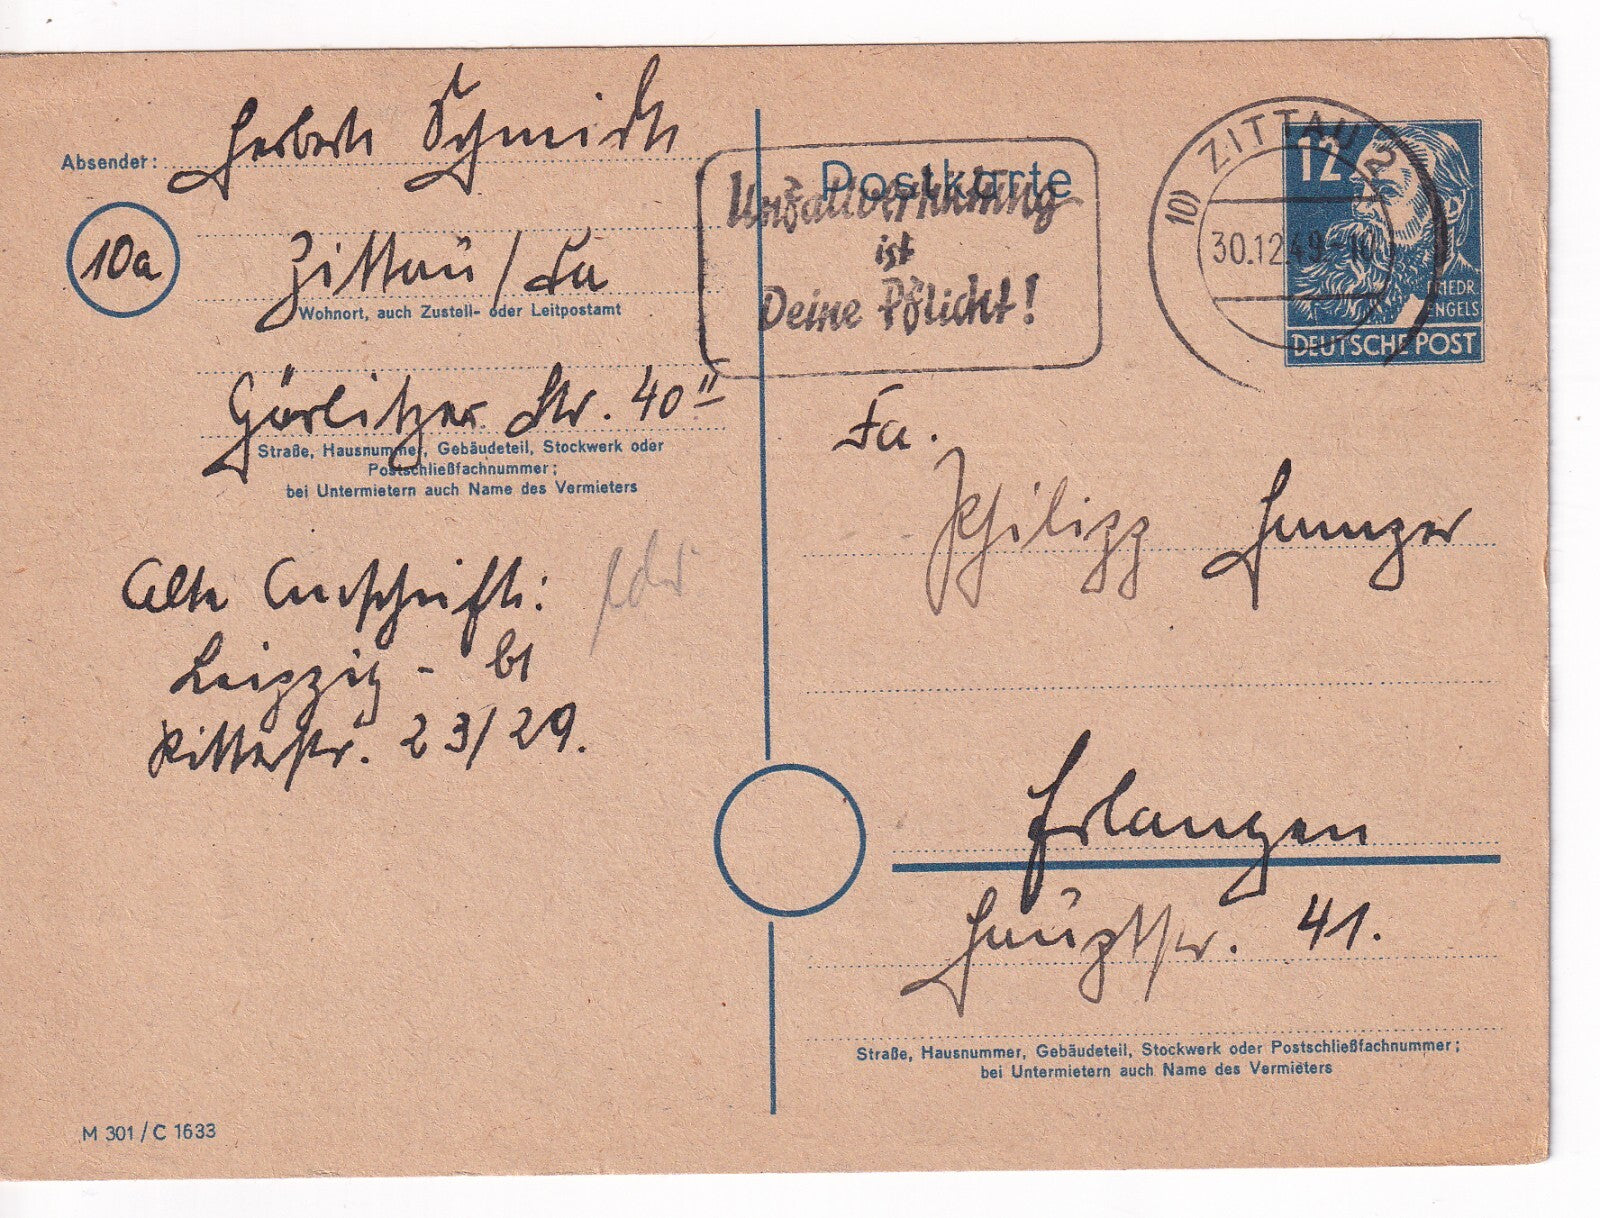 Absender: Herbert Schmidt
10a
Zittau / Sa
Wohnort, auch Zustell- oder Leitpostamt
Görlitzer Str. 40 II
Straße, Hausnummer, Gebäudeteil, Stockwerk oder
Postschließfachnummer;
bei Untermietern auch Name des Vermieters
Alte Anschrift:
Leipzig - C1
Ritterstr. 23/29.
M 301 / C 1633
Postkarte
Unfallverhütung
ist
Deine Pflicht!
10) ZITTAU 2
30.12.49.-10
12
FRIEDR.
ENGELS
DEUTSCHE POST
Fa.
Philipp
Erlangen
Hauptstr. 41.
Straße, Hausnummer, Gebäudeteil, Stockwerk oder Postschließfachnummer;
bei Untermietern auch Name des Vermieters